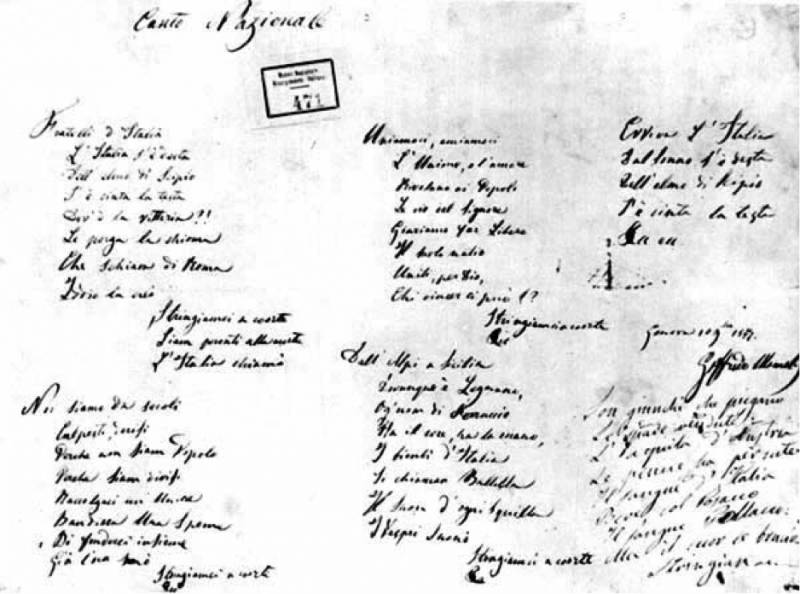 Canto Nazionale
471
Fratelli d'Italia
L'Italia s'è desta
Dell'elmo di Scipio
S'è cinta la testa
Dov'è la vittoria?!
Le porga la chioma
Che schiava di Roma
Iddio la creò
Stringiamci a coorte
Siam pronti alla morte
L'Italia chiamò
Noi siamo da secoli
Calpesti, derisi
Perché non siam Popolo
Perché siam divisi
Raccolgaci un'Unica
Bandiera Una Speme
Di fonderci insieme
Già l'ora suonò
Stringiamci a coorte
Uniamoci, amiamoci
L'Unione, e l'amore
Rivelano ai Popoli
Le vie del Signore
Giuriamo far Libero
Il suolo natio
Uniti, per Dio,
Chi vincer ci può!?
Stringiamci a coorte
Dall'Alpi a Sicilia
Dovunque è Legnano,
Ogn'uom di Ferruccio
Ha il core, ha la mano,
I bimbi d'Italia
Si chiaman Balilla
Il Suon d'ogni Squilla
I Vespri Suonò
Stringiamci a coorte
Evviva l'Italia
Dal Sonno s'è desta
Dell'elmo di Scipio
S'è cinta la testa
Genova
Goffredo Mameli
Son giunchi che piegano
Le spade vendute
L'Aquila d'Austria
Le penne ha perdute
Il sangue d'Italia
Bevé col Cosacco
Il sangue Polacco:
Ma il cuor le bruciò
Stringiam